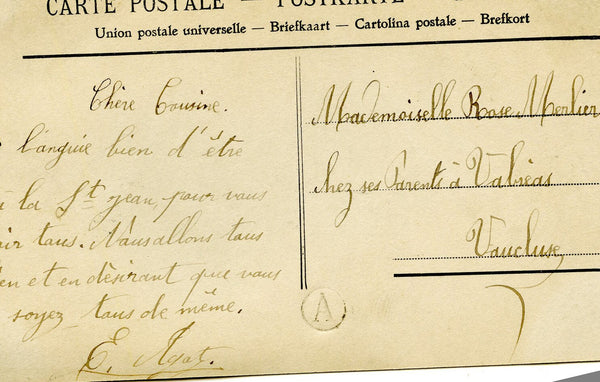 CARTE POSTALE — POSTKARTE —
Union postale universelle — Briefkaart — Cartolina postale — Brefkort
Chère Cousine.
languie bien d'être
à la St jean, pour vous
oir tous. Nous allons tous
en et en désirant que vous
soyez tous de même.
E.
Mademoiselle Rose Merlier
chez ses Parents à Valréas
Vaucluse
A